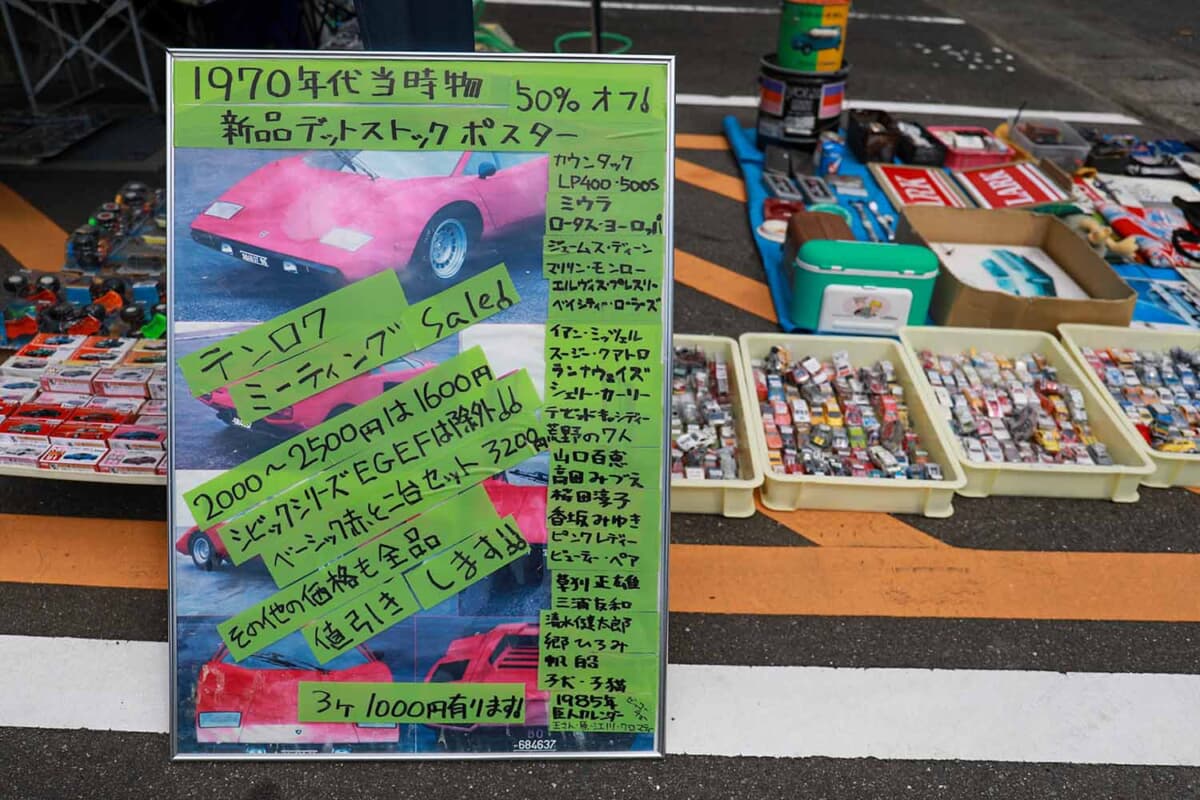 1970年代当時物
50% オフ!
新品デットストック ポスター
カウンタック
LP400・500S
ミウラ
ロータス・ヨーロッパ
ジェームス・ディーン
マリリン・モンロー
エルヴィス・プレスリー
ベイシティ・ローラーズ
イアン・ミッツェル
スージー・クアトロ
ランナウェイズ
シェリー・カーリー
デビットキャシディー
荒野の7人
山口百恵
高田みづえ
桜田淳子
香坂みゆき
ピンクレディー
ビューティー・ペア
草刈正雄
三浦友和
清水健太郎
郷ひろみ
帆船
子犬・子猫
1985年
巨人カレンダー
王さん・原・江川・クロマティ
テンロク
ミーティング Sale!
2000〜2500円は1600円
シビックシリーズ EGEFは除外!!
ベーシック赤と二台セット 3200円
その他の価格も全品
値引き します!!
3ケ 1000円有ります!
-684637
LARK